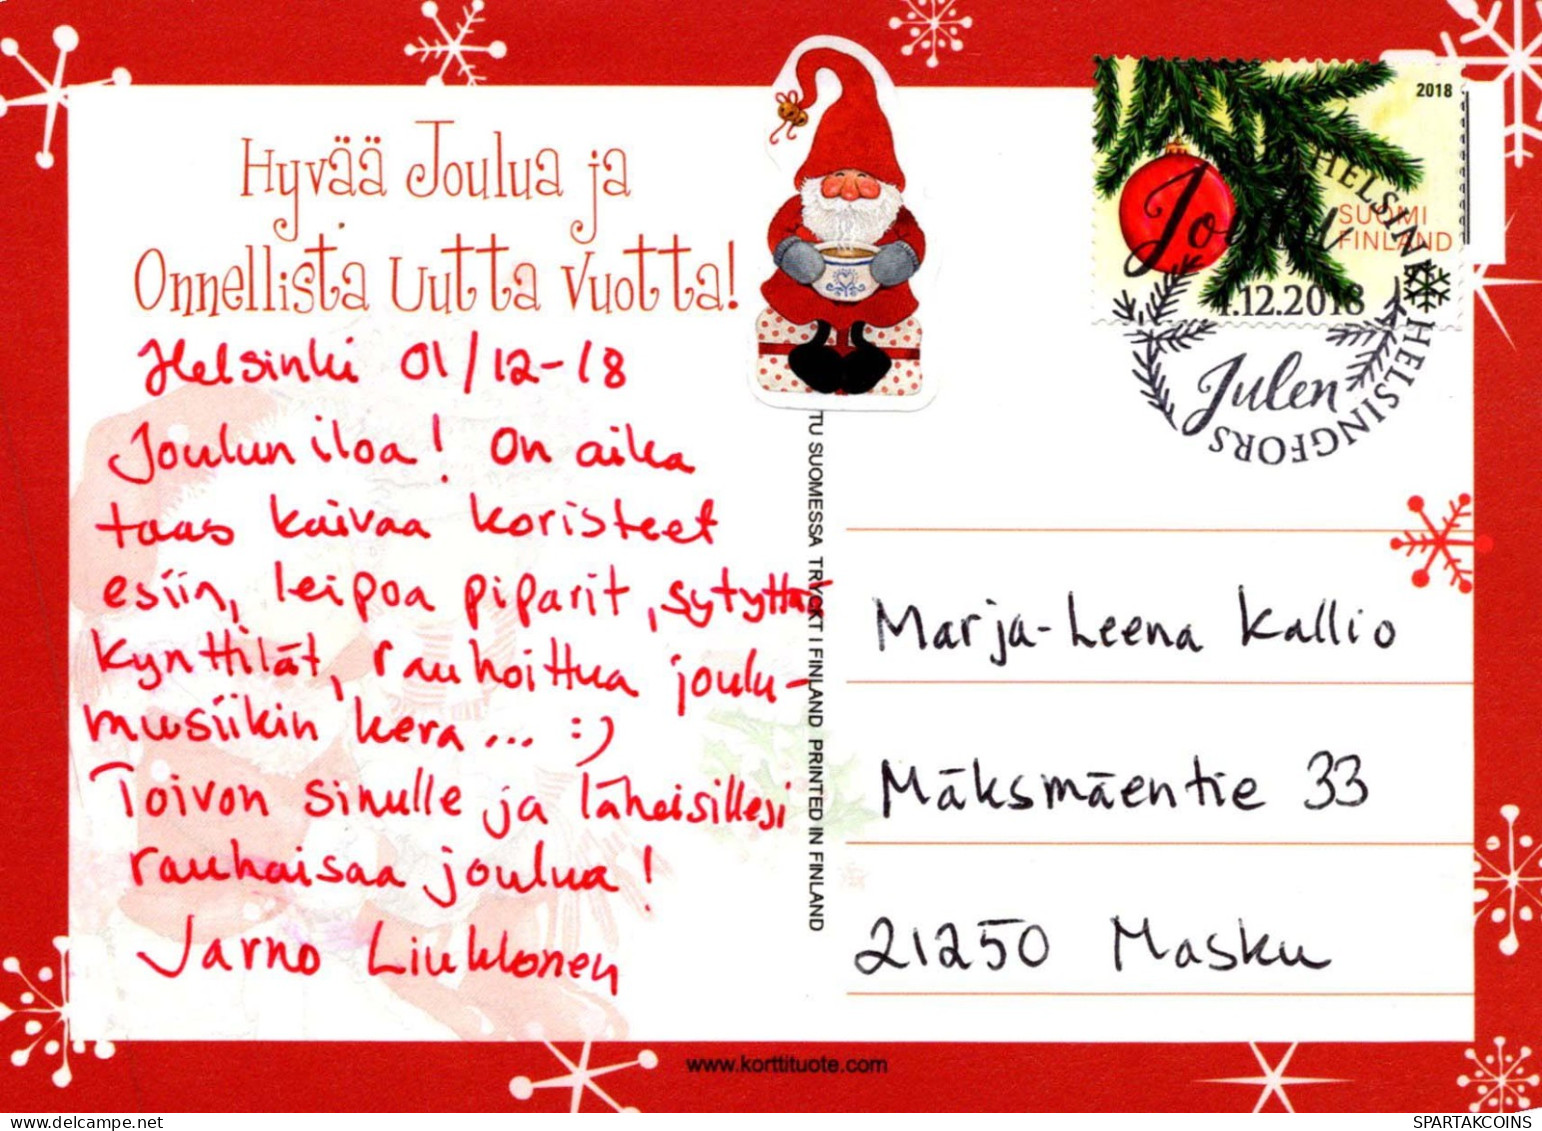 Hyvää Joulua ja
Onnellista Uutta Vuotta!
Helsinki 01/12-18
Joulun iloa! On aika
taas kaivaa koristeet
esiin, leipoa piparit, sytyttää
kynttilät, rauhoittua joulu-
musiikin kera... :)
Toivon sinulle ja läheisillesi
rauhaisaa joulua!
Jarno Liukkonen
2018
SUOMI
FINLAND
Joulu
HELSINKI
HELSINGFORS
4.12.2018
Julen
TU SUOMESSA TRYCKT I FINLAND PRINTED IN FINLAND
Marja-Leena Kallio
Mäksmäentie 33
21250 Masku
www.korttituote.com
SPARTAKCOINS